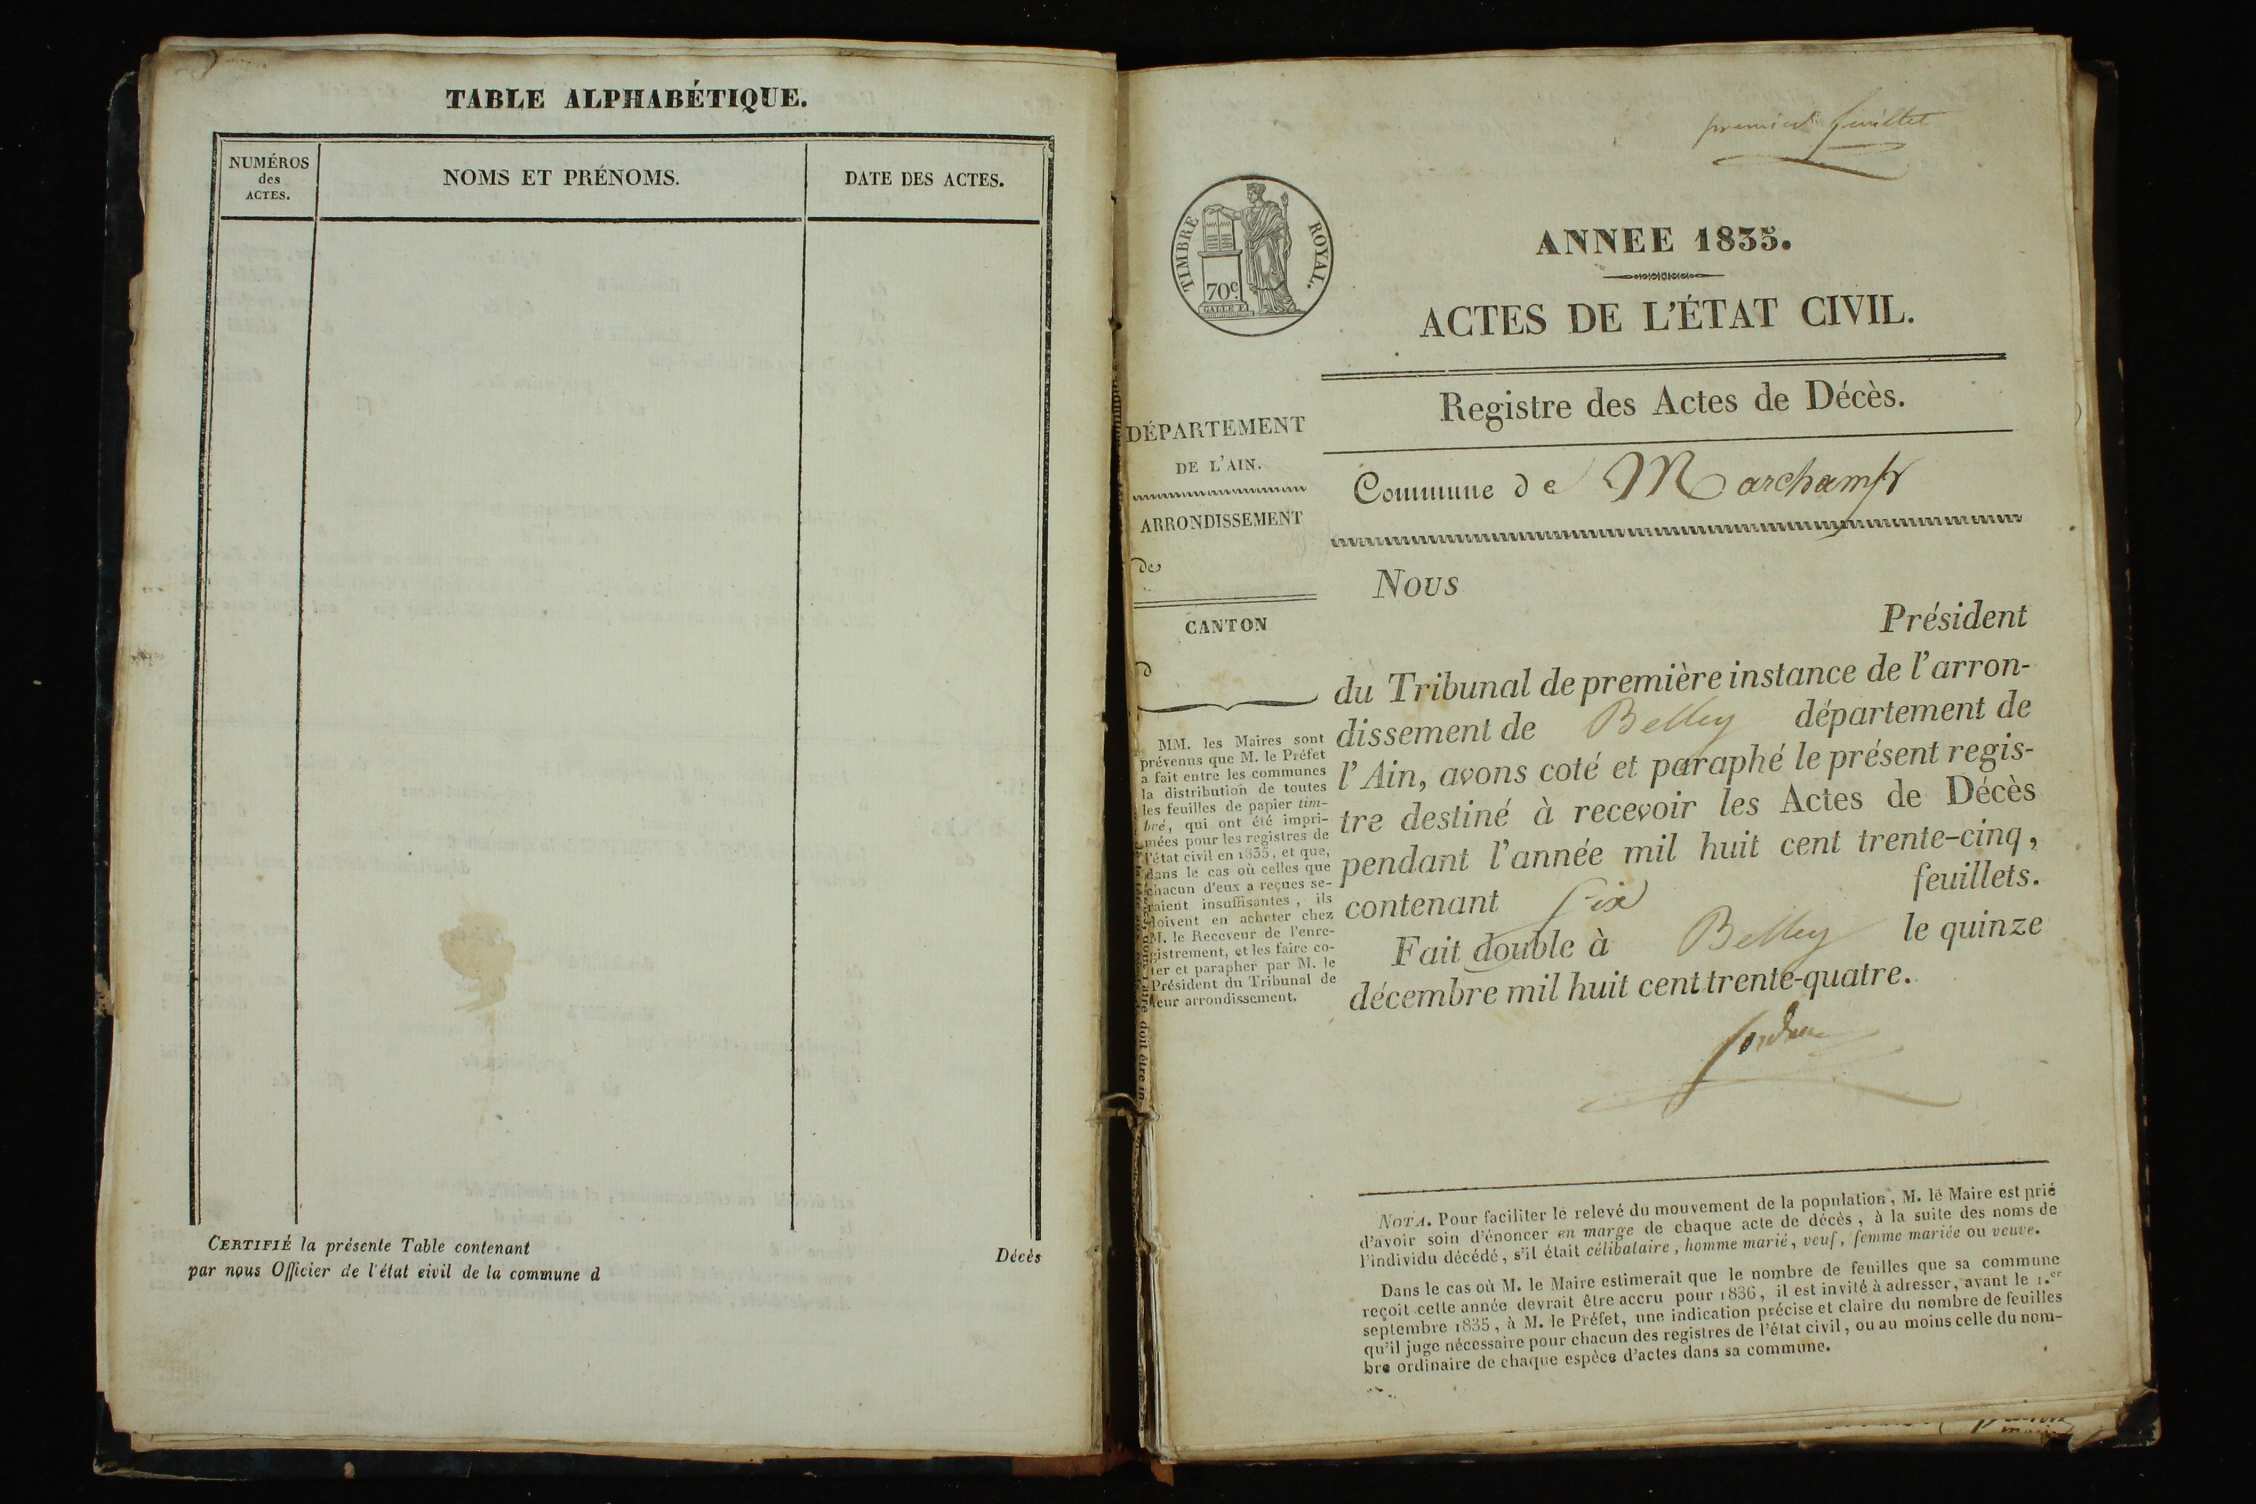 TABLE ALPHABÉTIQUE.
NUMÉROS
des
ACTES.
NOMS ET PRÉNOMS.
DATE DES ACTES.
CERTIFIÉ la présente Table contenant
Décès
par nous Officier de l'état civil de la commune d
premier feuillet
TIMBRE ROYAL.
70c.
ANNEE 1835.
ACTES DE L'ÉTAT CIVIL.
Registre des Actes de Décès.
Commune de Marchamp
DÉPARTEMENT
DE L'AIN.
ARRONDISSEMENT
de
CANTON
d
MM. les Maires sont
prévenus que M. le Préfet
a fait entre les communes
la distribution de toutes
les feuilles de papier tim-
bré, qui ont été impri-
mées pour les registres de
l'état civil en 1835, et que,
dans le cas où celles que
chacun d'eux a reçues se-
raient insuffisantes, ils
doivent en acheter chez
M. le Receveur de l'enre-
gistrement, et les faire co-
ter et parapher par M. le
Président du Tribunal de
leur arrondissement.
NOUS
Président
du Tribunal de première instance de l'arron-
dissement de Belley département de
l'Ain, avons coté et paraphé le présent regis-
tre destiné à recevoir les Actes de Décès
pendant l'année mil huit cent trente-cinq,
contenant six feuillets.
Fait double à Belley le quinze
décembre mil huit cent trente-quatre.
NOTA. Pour faciliter le relevé du mouvement de la population, M. le Maire est prié
d'avoir soin d'énoncer en marge de chaque acte de décès, à la suite des noms de
l'individu décédé, s'il était célibataire, homme marié, veuf, femme mariée ou veuve.
Dans le cas où M. le Maire estimerait que le nombre de feuilles que sa commune
reçoit cette année devrait être accru pour 1836, il est invité à adresser, avant le 1.er
septembre 1835, à M. le Préfet, une indication précise et claire du nombre de feuilles
qu'il juge nécessaire pour chacun des registres de l'état civil, ou au moins celle du nom-
bre ordinaire de chaque espèce d'actes dans sa commune.